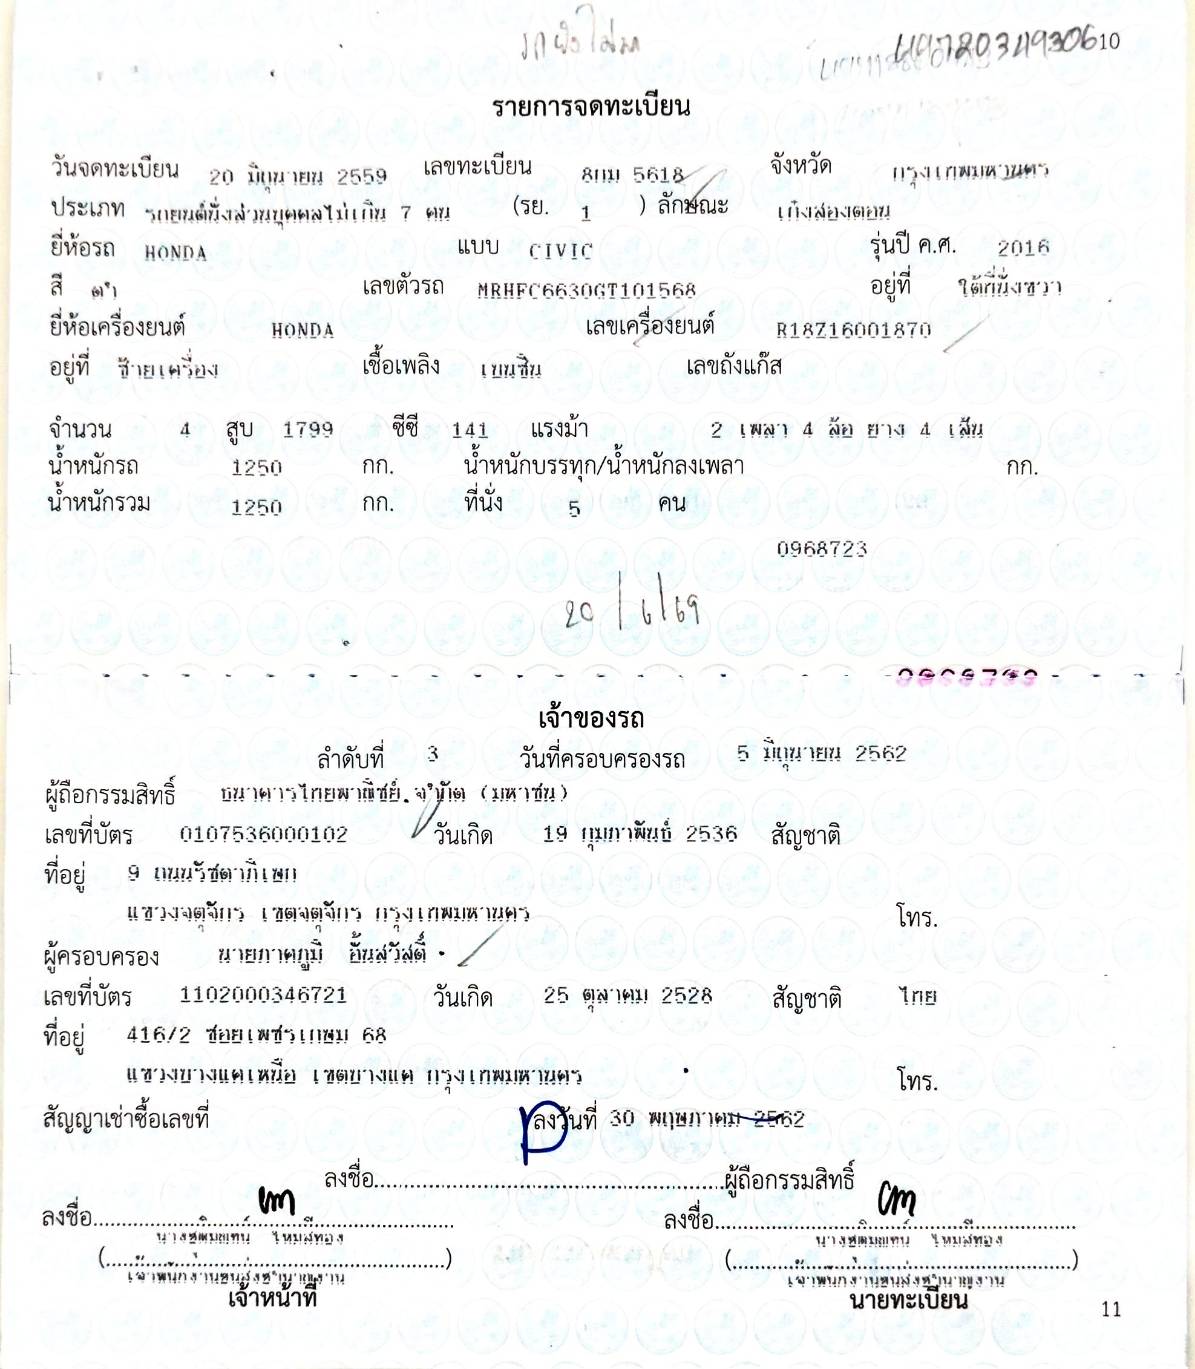 10
รายการจดทะเบียน
วันจดทะเบียน 20 มิถุนายน 2559 เลขทะเบียน 8กม 5618 จังหวัด กรุงเทพมหานคร
ประเภท รถยนต์นั่งส่วนบุคคลไม่เกิน 7 คน (รย. 1 ) ลักษณะ เก๋งสองตอน
ยี่ห้อรถ HONDA แบบ CIVIC รุ่นปี ค.ศ. 2016
สี ดำ เลขตัวรถ MRHFC6630GT101568 อยู่ที่ ใต้ที่นั่งขวา
ยี่ห้อเครื่องยนต์ HONDA เลขเครื่องยนต์ R18Z16001870
อยู่ที่ ซ้ายเครื่อง เชื้อเพลิง เบนซิน เลขถังแก๊ส
จำนวน 4 สูบ 1799 ซีซี 141 แรงม้า 2 เพลา 4 ล้อ ยาง 4 เส้น
น้ำหนักรถ 1250 กก. น้ำหนักบรรทุก/น้ำหนักลงเพลา กก.
น้ำหนักรวม 1250 กก. ที่นั่ง 5 คน
0968723
20/6/69
เจ้าของรถ
ลำดับที่ 3 วันที่ครอบครองรถ 5 มิถุนายน 2562
ผู้ถือกรรมสิทธิ์ ธนาคารไทยพาณิชย์.จำกัด (มหาชน)
เลขที่บัตร 0107536000102 วันเกิด 19 กุมภาพันธ์ 2536 สัญชาติ
ที่อยู่ 9 ถนนรัชดาภิเษก
แขวงจตุจักร เขตจตุจักร กรุงเทพมหานคร โทร.
ผู้ครอบครอง นายภาคภูมิ อั้นสวัสดิ์
เลขที่บัตร 1102000346721 วันเกิด 25 ตุลาคม 2528 สัญชาติ ไทย
ที่อยู่ 416/2 ซอยเพชรเกษม 68
แขวงบางแคเหนือ เขตบางแค กรุงเทพมหานคร โทร.
สัญญาเช่าซื้อเลขที่ ลงวันที่ 30 พฤษภาคม 2562
ลงชื่อ........................................ผู้ถือกรรมสิทธิ์
ลงชื่อ........................................ ลงชื่อ........................................
(........................................) (........................................)
เจ้าพนักงานขนส่งชำนาญงาน เจ้าพนักงานขนส่งชำนาญงาน
เจ้าหน้าที่ นายทะเบียน
11